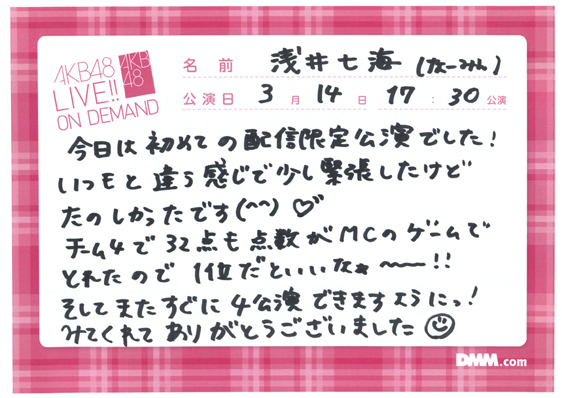 AKB48
LIVE!!
ON DEMAND
AKB
48
名前 浅井七海 (なーみん)
公演日 3月14日17:30公演
今日は初めての配信限定公演でした!
いつもと違う感じで少し緊張したけど
たのしかったです(^^)♡
チーム4で32点も点数がMCのゲームで
とれたので1位だといいなぁ〜〜!!
そしてまたすぐに4公演できますようにっ!
みてくれてありがとうございました☺
DMM.com